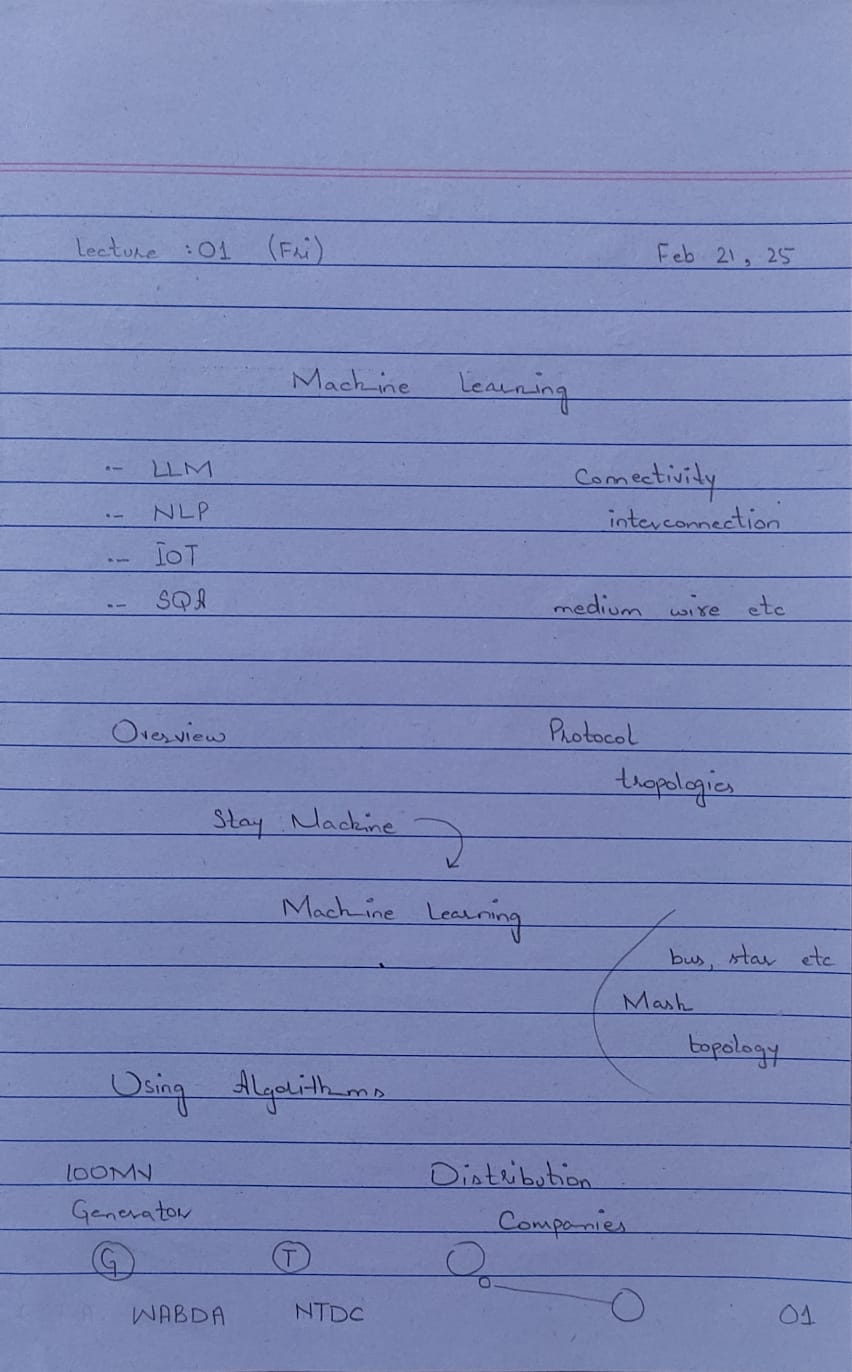 Lecture :01 (Fri) Feb 21, 25
Machine Learning
.- LLM Connectivity
.- NLP interconnection
.- IOT
.- SQA medium wire etc
Overview Protocol
tropologies
Stay Machine
Machine Learning
bus, star etc
Mash
topology
Using Algorithms
100MV Distribution
Generator Companies
G T
WABDA NTDC 01